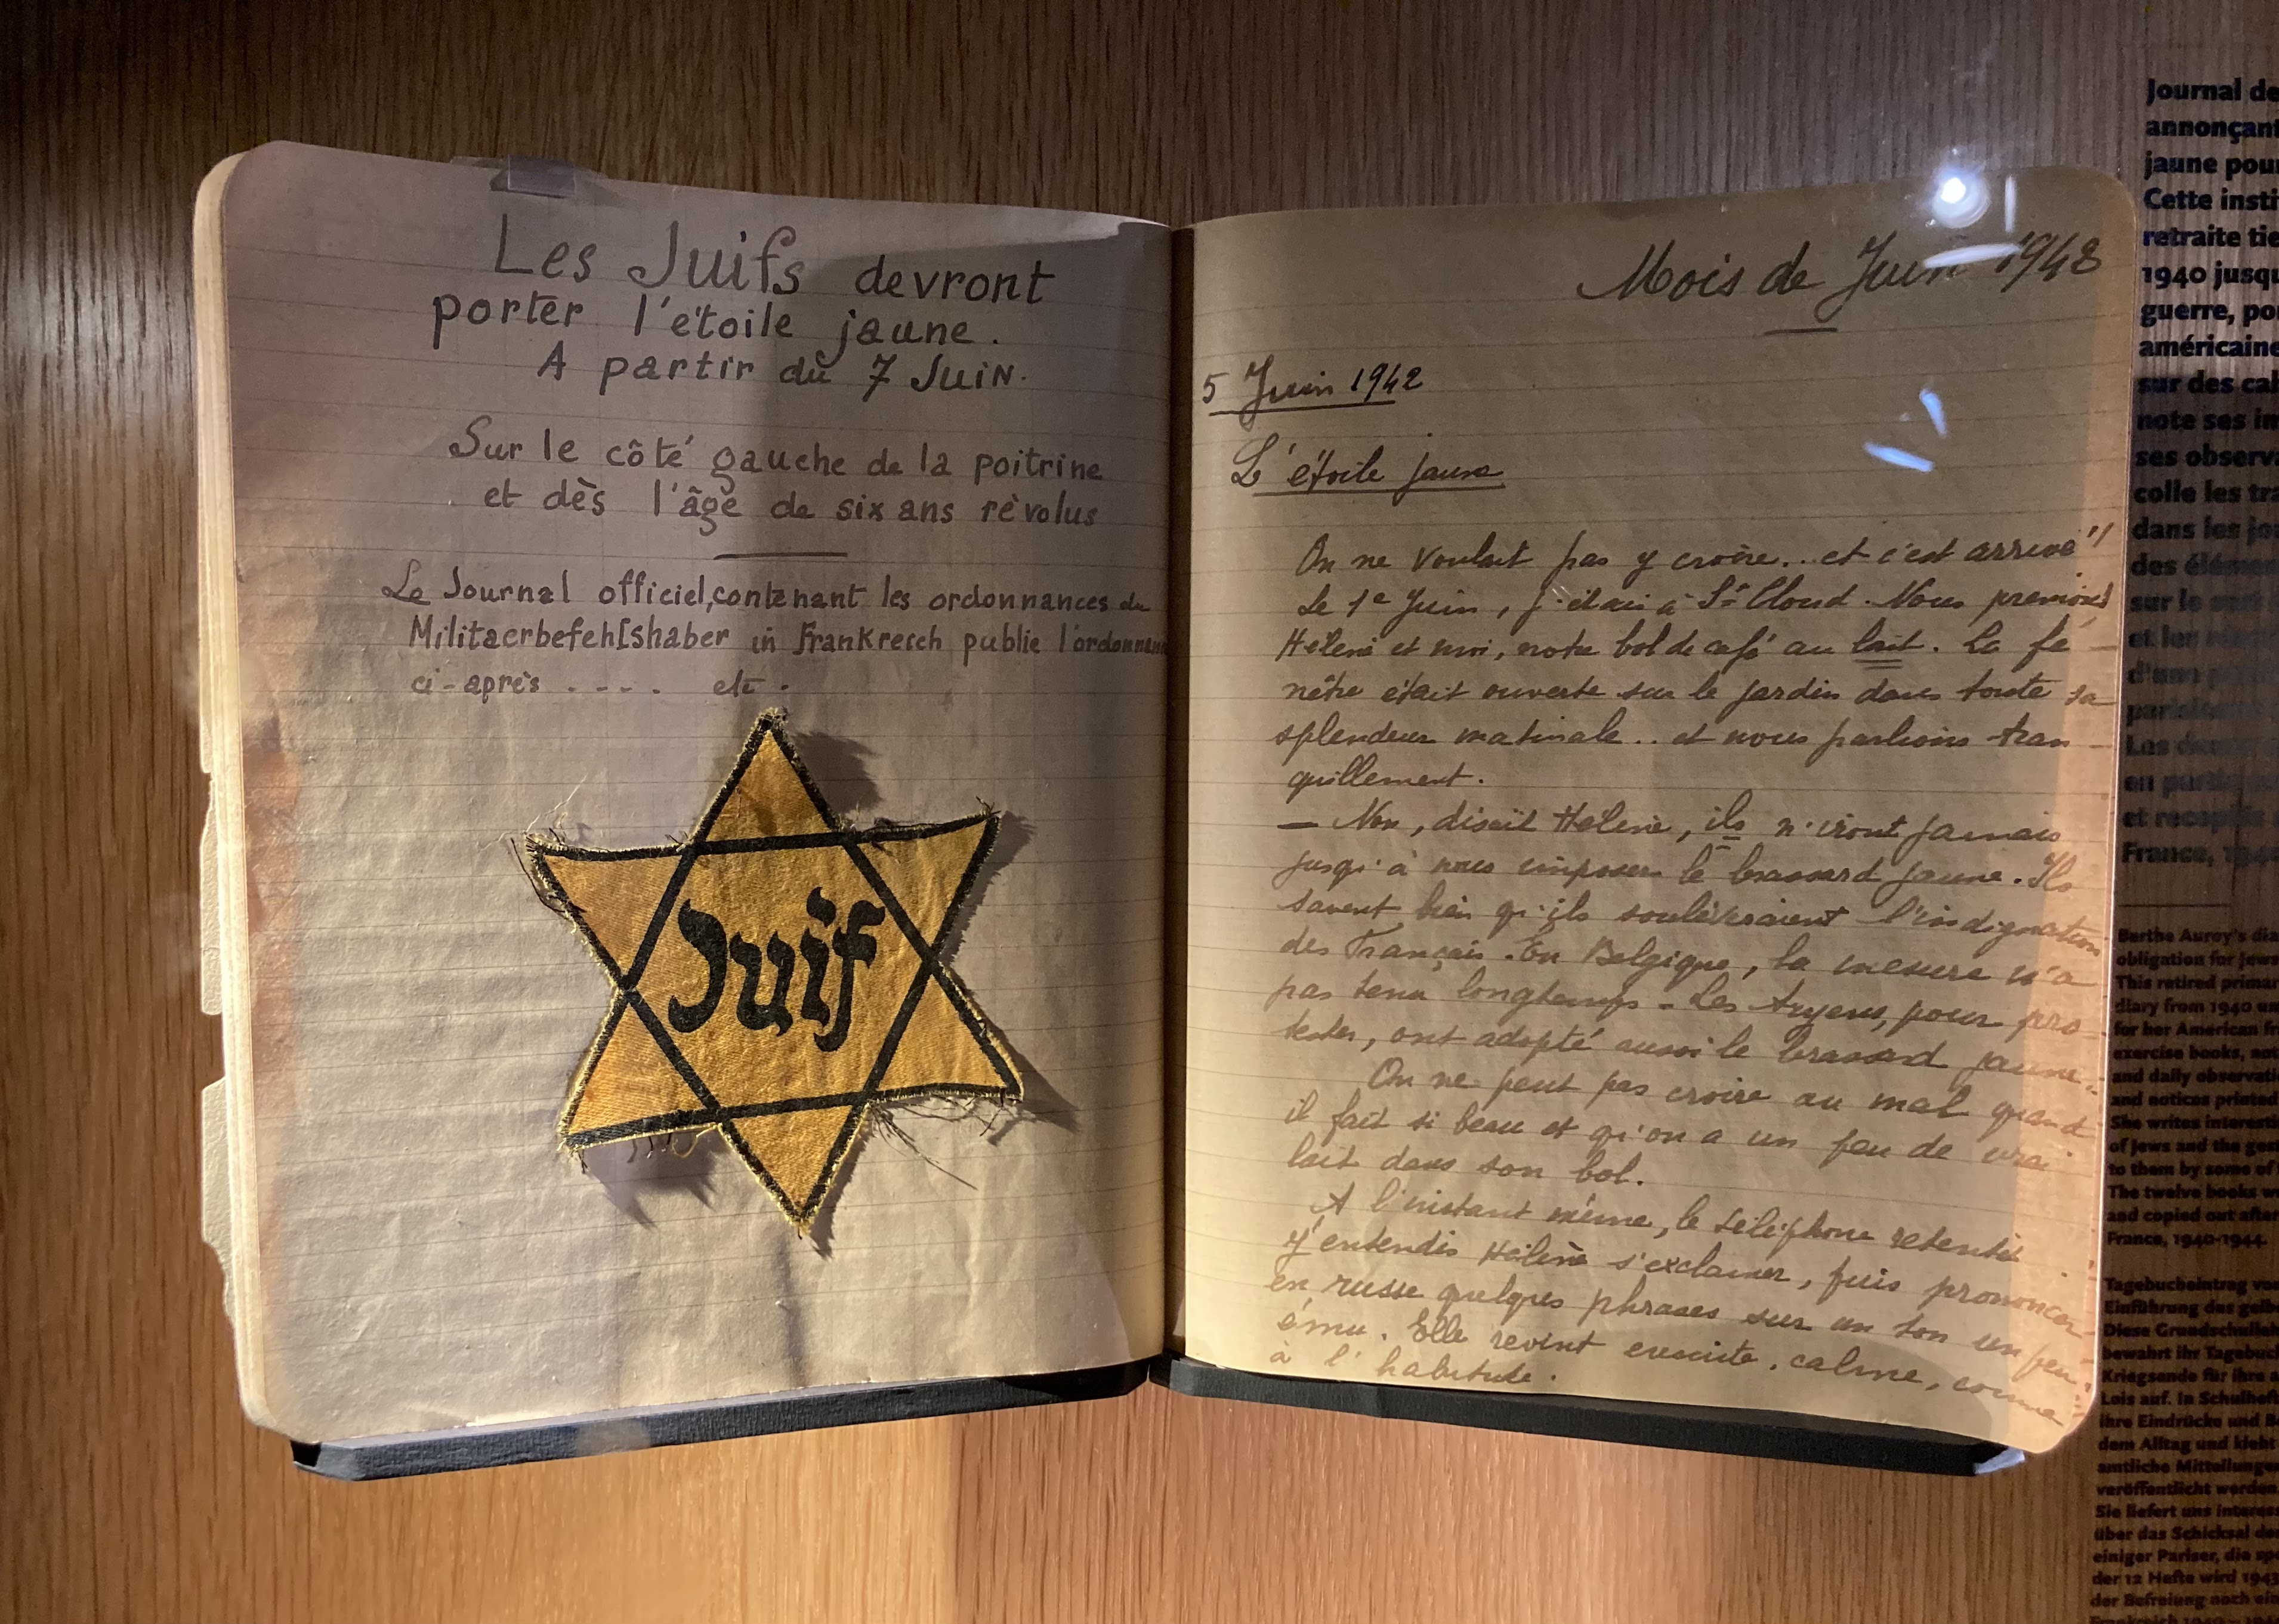 Les Juifs devront
porter l'étoile jaune.
A partir du 7 Juin.
Sur le côté gauche de la poitrine
et dès l'âge de six ans révolus
Le Journal officiel, contenant les ordonnances du
Militaerbefehlshaber in Frankreich publie l'ordonnan
ci-après .... etc.
Juif
Mois de Juin 1942
5 Juin 1942
L'étoile jaune
On ne voulait pas y croire... et c'est arrivé!!
Le 1e Juin, j'étais à St Cloud. Nous prenions,
Hélène et moi, notre bol de café au lait. La fe-
nêtre était ouverte sur le jardin dans toute sa
splendeur matinale.. et nous parlions tran-
quillement.
— Non, disait Hélène, ils n'iront jamais
jusqu'à nous imposer le brassard jaune. Ils
savent bien qu'ils soulèveraient l'indignation
des Français. En Belgique, la mesure n'a
pas tenu longtemps - Les Aryens, pour pro-
tester, ont adopté aussi le brassard jaune..
On ne peut pas croire au mal quand
il fait si beau et qu'on a un peu de vrai
lait dans son bol.
A l'instant même, le téléphone retentit
J'entendis Hélène s'exclamer, puis prononcer
en russe quelques phrases sur un ton un peu
ému. Elle revint ensuite, calme, comme
à l'habitude.
Journal de
annonçant
jaune pour
Cette insti
retraite tie
1940 jusqu
guerre, po
américaine
sur des cah
note ses im
ses observa
colle les tra
dans les jo
des élém
sur le sort
et les
d'une
parisiens
Les
en parti
et recopiés
France, 194
Berthe Auroy's dia
obligation for Jews
This retired primar
diary from 1940 un
for her American fr
exercise books, not
and daily observati
and notices printed
She writes interesti
of Jews and the ges
to them by some of
The twelve books w
and copied out after
France, 1940-1944.
Tagebucheintrag vo
Einführung des gelb
Diese Grundschulleh
bewahrt ihr Tagebuc
Kriegsende für ihre a
Lois auf. In Schulheft
ihre Eindrücke und B
dem Alltag und klebt
amtliche Mitteilunge
veröffentlicht werden
Sie liefert uns interes
über das Schicksal de
einiger Pariser, die sp
der 12 Hefte wird 1943
der Befreiung noch ei